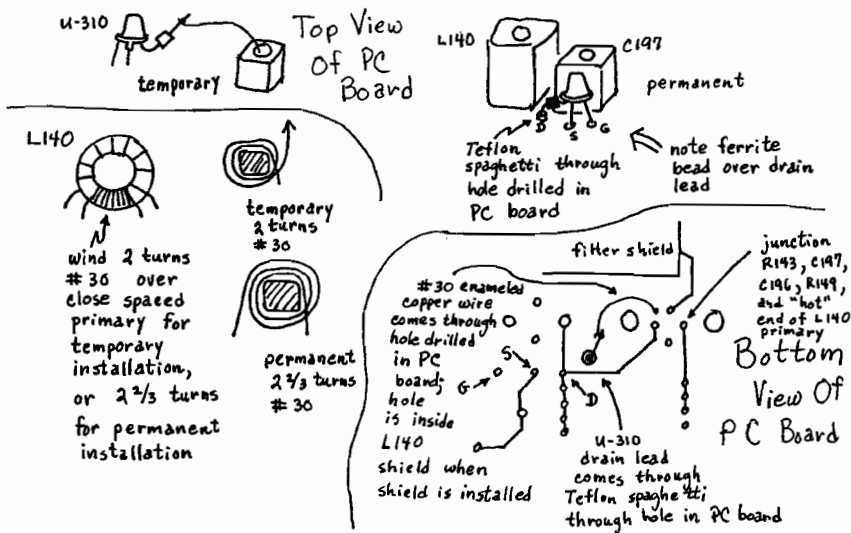 U-310
temporary
Top View
Of PC
Board
L140
C197
permanent
D
S
G
Teflon
spaghetti through
hole drilled in
PC board
note ferrite
bead over drain
lead
L140
wind 2 turns
#36 over
close spaced
primary for
temporary
installation,
or 2 2/3 turns
for permanent
installation
temporary
2 turns
#30
permanent
2 2/3 turns
#30
filter shield
junction
R143, C197,
C196, R149,
and "hot"
end of L140
primary
#30 enameled
copper wire
comes through
hole drilled
in PC
board;
hole
is inside
L140
shield when
shield is installed
S
G
D
U-310
drain lead
comes through
Teflon spaghetti
through hole in PC board
Bottom
View Of
PC Board